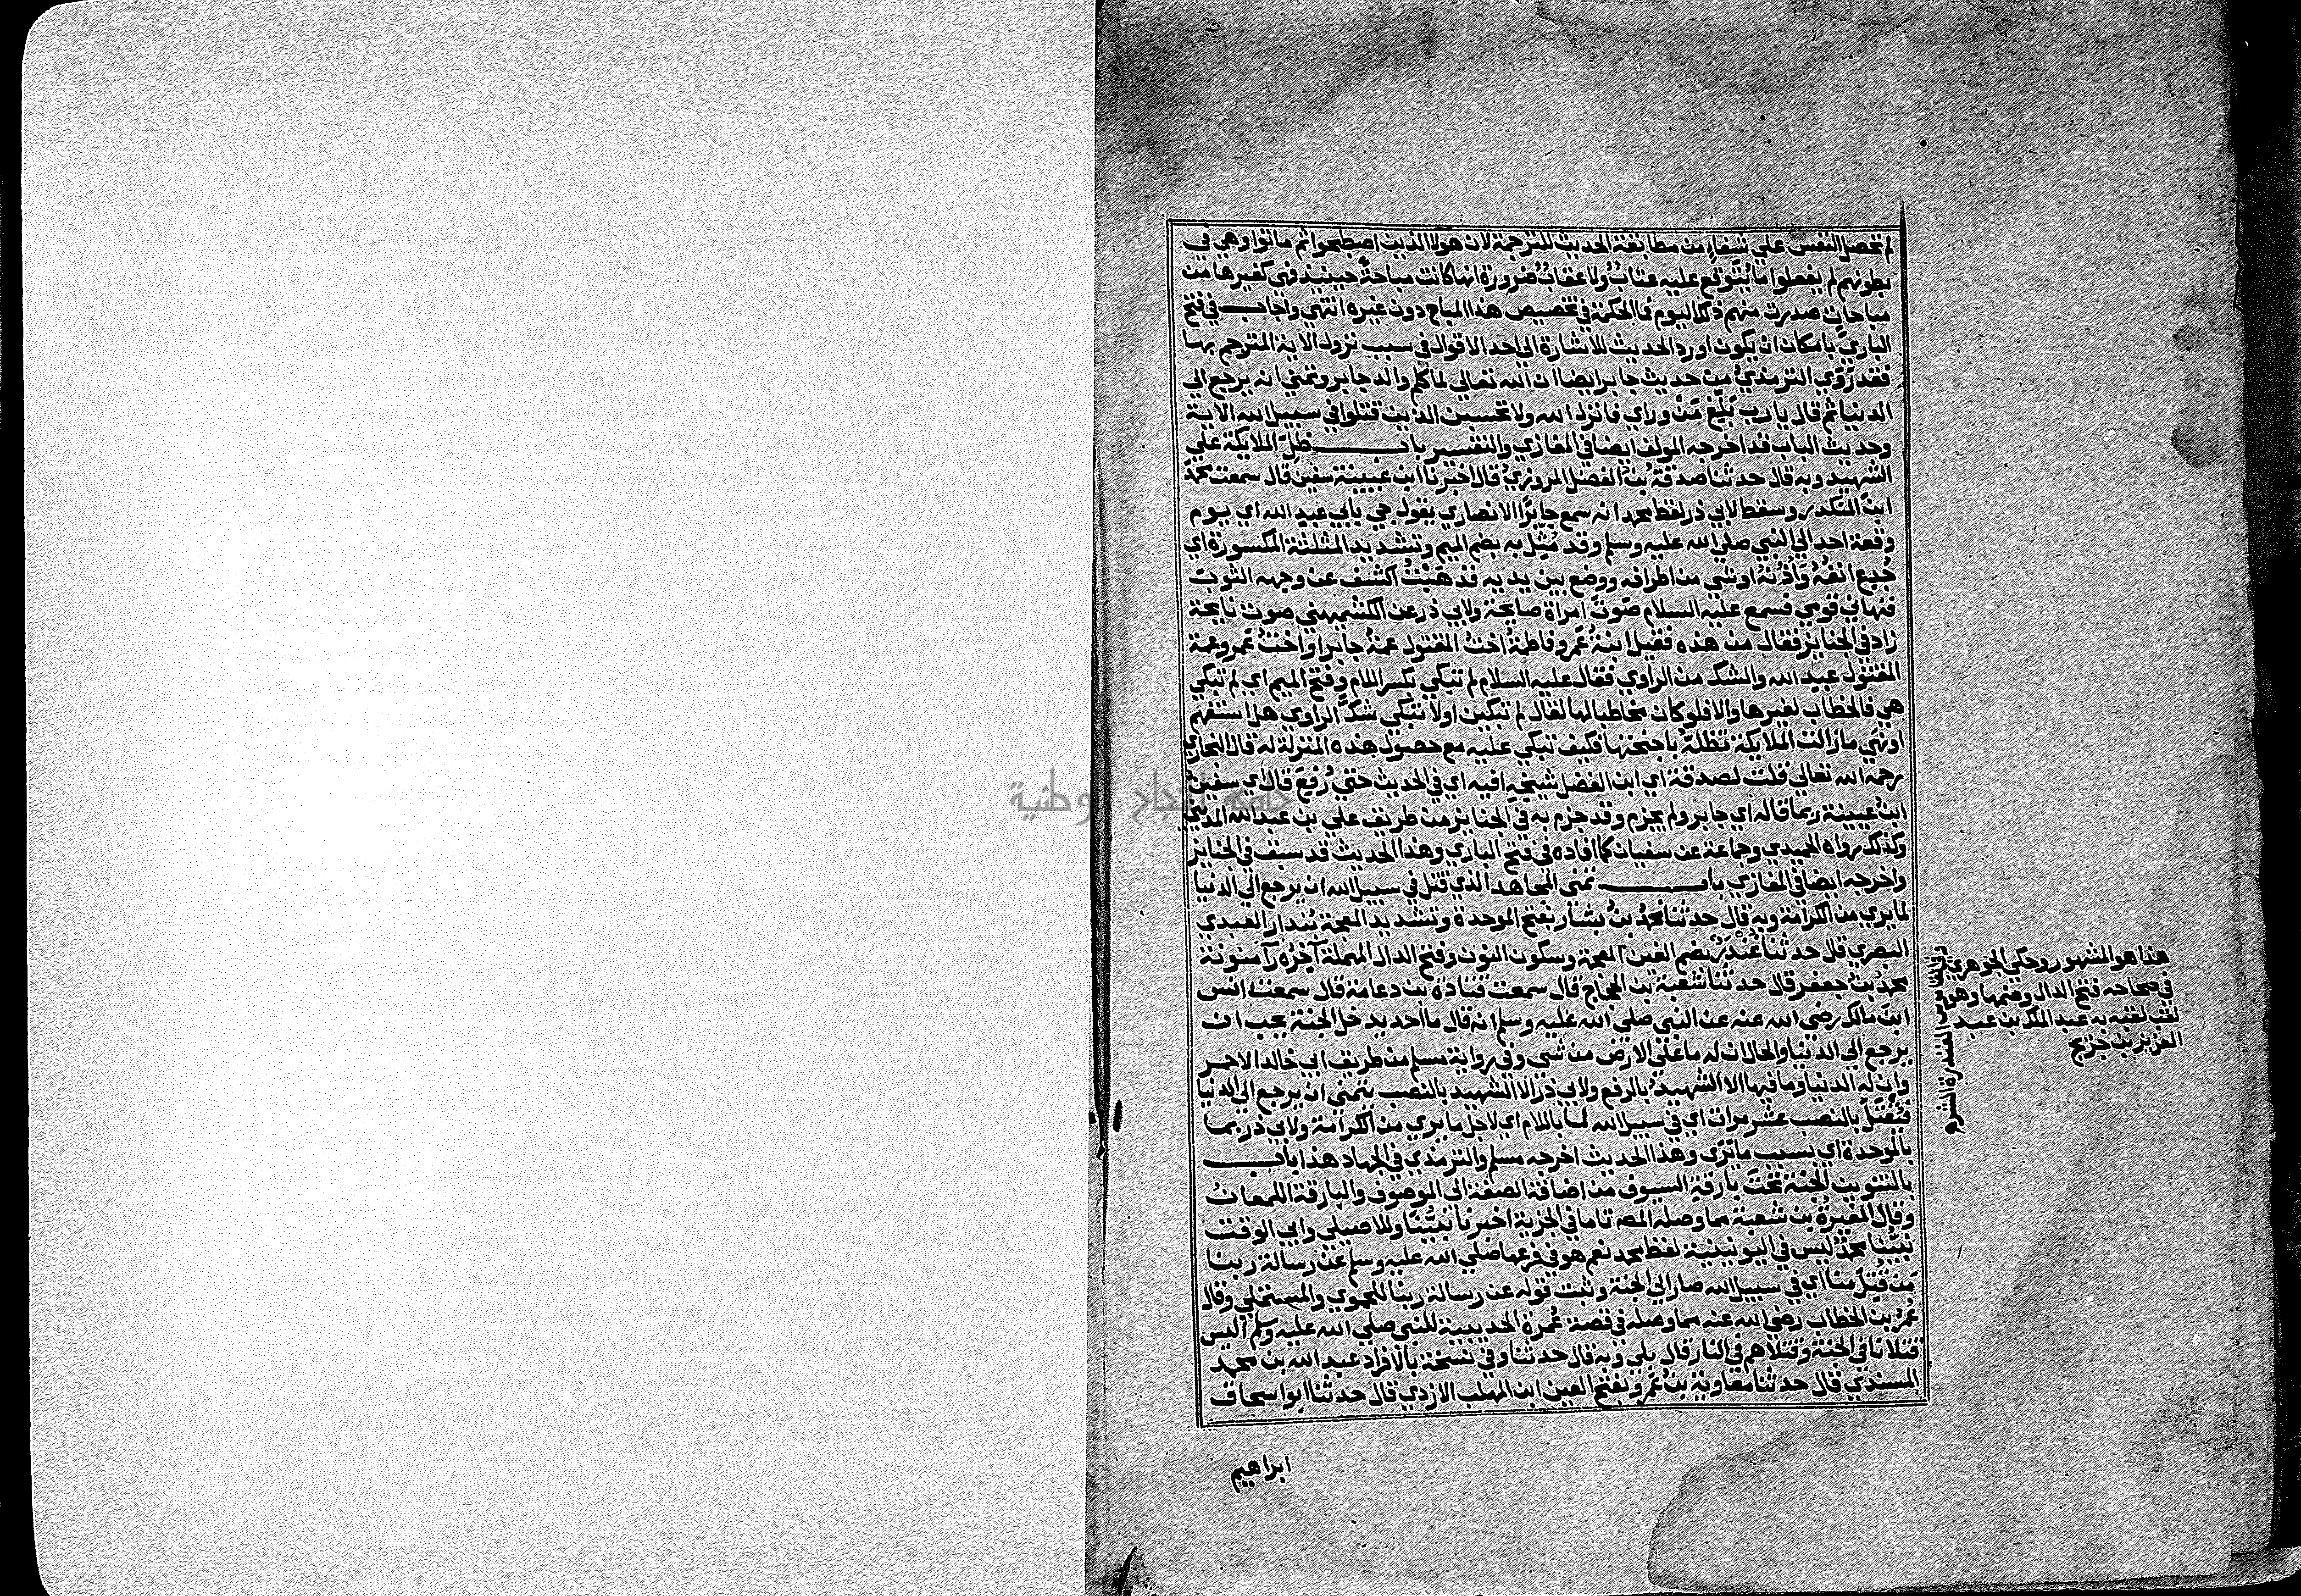 لم تحصل النفس علي شفاء من مطابقة الحديث للترجمة لان هولا الذين اصطبحوا ثم ماتوا وهي في
بطونهم لم يفعلوا ما يُتوقع عليه عتاب ولا عقاب ضرورة انها كانت مباحة حينيذ فهي كغيرها من
مباحات صدرت منهم ذلك اليوم فما الحكمة في تخصيص هذا المباح دون غيره انتهي واجاب في فتح
الباري بامكان ان يكون اورد الحديث للاشارة الي احد الاقوال في سبب نزول الاية المترجم بها
فقد روي الترمذي من حديث جابر ايضا ان الله تعالي لما كلم والد جابر وتمني ان يرجع الي
الدنيا ثم قال يا رب بلّغ مَن وراي فانزل الله ولا تحسبن الذين قتلوا في سبيل الله الاية
وحديث الباب قد اخرجه المولف ايضا في المغازي والتفسير باب ظل الملايكة علي
الشهيد وبه قال حدثنا صدقة بن الفضل المروزي قال اخبرنا ابن عيينة سفين قال سمعت محمد
ابن المنكدر وسقط لابي ذر لفظ محمد انه سمع جابرا الانصاري يقول جي بابي عبد الله اي يوم
وقعة احد الي النبي صلي الله عليه وسلم وقد مُثّل به بضم الميم وتشديد المثلثة المكسورة اي
جُدِع انفُهُ وَاُذُنهُ او شي من اطرافه ووضع بين يديه فذهَبْتُ اكشف عن وجهه الثوب
فنهاني قومي فسمع عليه السلام صوتَ امراة صايحة ولابي ذر عن الكشميهني صوت نايحة
زاد في الجنايز فقال من هذه فقيل ابنة عَمرو فاطمة اختُ المقتول عمة جابر او اختُ عَمرو عمة
المقتول عبد الله والشك من الراوي فقال عليه السلام لم تبكي بكسر اللام وفتح الميم اي لم تبكي
هي فالخطاب لغيرها والا فلو كان مخاطبا لها لقال لم تبكين او لا تبكي شك الراوي هل استفهم
او نهي ما زالت الملايكة تظله باجنحتها فكيف تبكي عليه مع حصول هذه المنزلة له قال البخاري
رحمه الله تعالي قلت لصدقة اي ابن الفضل شيخه افيه اي في الحديث حتي رُفِعَ قال اي سفين
ابن عيينة ربما قاله اي جابر ولم يجزم وقد جزم به في الجنايز من طريق علي بن عبد الله المديني
وكذلك رواه الحميدي وجماعة عن سفيان كما افاده في فتح الباري وهذا الحديث قد سبق في الجنايز
واخرجه ايضا في المغازي باب تمني المجاهد الذي قتل في سبيل الله ان يرجع الي الدنيا
لما يري من الكرامة وبه قال حدثنا محمدُ بنُ بشار بفتح الموحدة وتشديد المعجمة بُندار العبدي
البصري قال حدثنا غُنْدَرٌ بضم الغين المعجمة وسكون النون وفتح الدال المهملة آخره رآ منونة
محمد بن جعفر قال حدثنا شعبة بن الحجاج قال سمعت قتادة بن دعامة قال سمعت انس
ابن مالك رضي الله عنه عن النبي صلي الله عليه وسلم انه قال ما احد يدخل الجنة يحب ان
يرجع الي الدنيا والحال ان له ما علي الارض من شي وفي رواية مسلم من طريق ابي خالد الاحمر
وان له الدنيا وما فيها الا الشهيدُ بالرفع ولابي ذر الا الشهيد بالنصب يتمني ان يرجع الي الدنيا
فيُقتلَ بالنصب عشر مرات اي في سبيل الله لما باللام اي لاجل ما يري من الكرامة ولابي ذر بما
بالموحدة اي بسبب ما يَرَي وهذا الحديث اخرجه مسلم والترمذي في الجهاد هذا باب
بالتنوين الجنة تحت بارقة السيوف من اضافة الصفة الي الموصوف والبارقة اللمعان
وقال المغيرة بن شعبة مما وصله المص تاما في الجزية اخبرنا نبيُّنا وللاصيلي وابي الوقت
نبيّنا محمدٌ ليس في اليونينية لفظ محمد نعم هو في فرعها صلي الله عليه وسلم عن رسالة ربنا
مَن قُتِلَ منا اي في سبيل الله صار الي الجنة وثبت قوله عن رسالة ربنا للحموي والمستملي وقال
عُمرُ بن الخطاب رضي الله عنه مما وصله في قصة عُمرة الحديبية للنبي صلي الله عليه وسلم اليس
قتلانا في الجنة وقتلاهم في النار قال بلي وبه قال حدثنا وفي نسخة بالافراد عبد الله بن محمد
المسندي قال حدثنا معاوية بن عَمرو بفتح العين ابن المهلب الازدي قال حدثنا ابو اسحاق
ابراهيم
هذا هو المشهور وحكي الجوهري
في صحاحه فتح الدال وضمها وهو
لقب لقبه به عبد الملك بن عبد
العزيز بن جريج
جامعة النجاح الوطنية